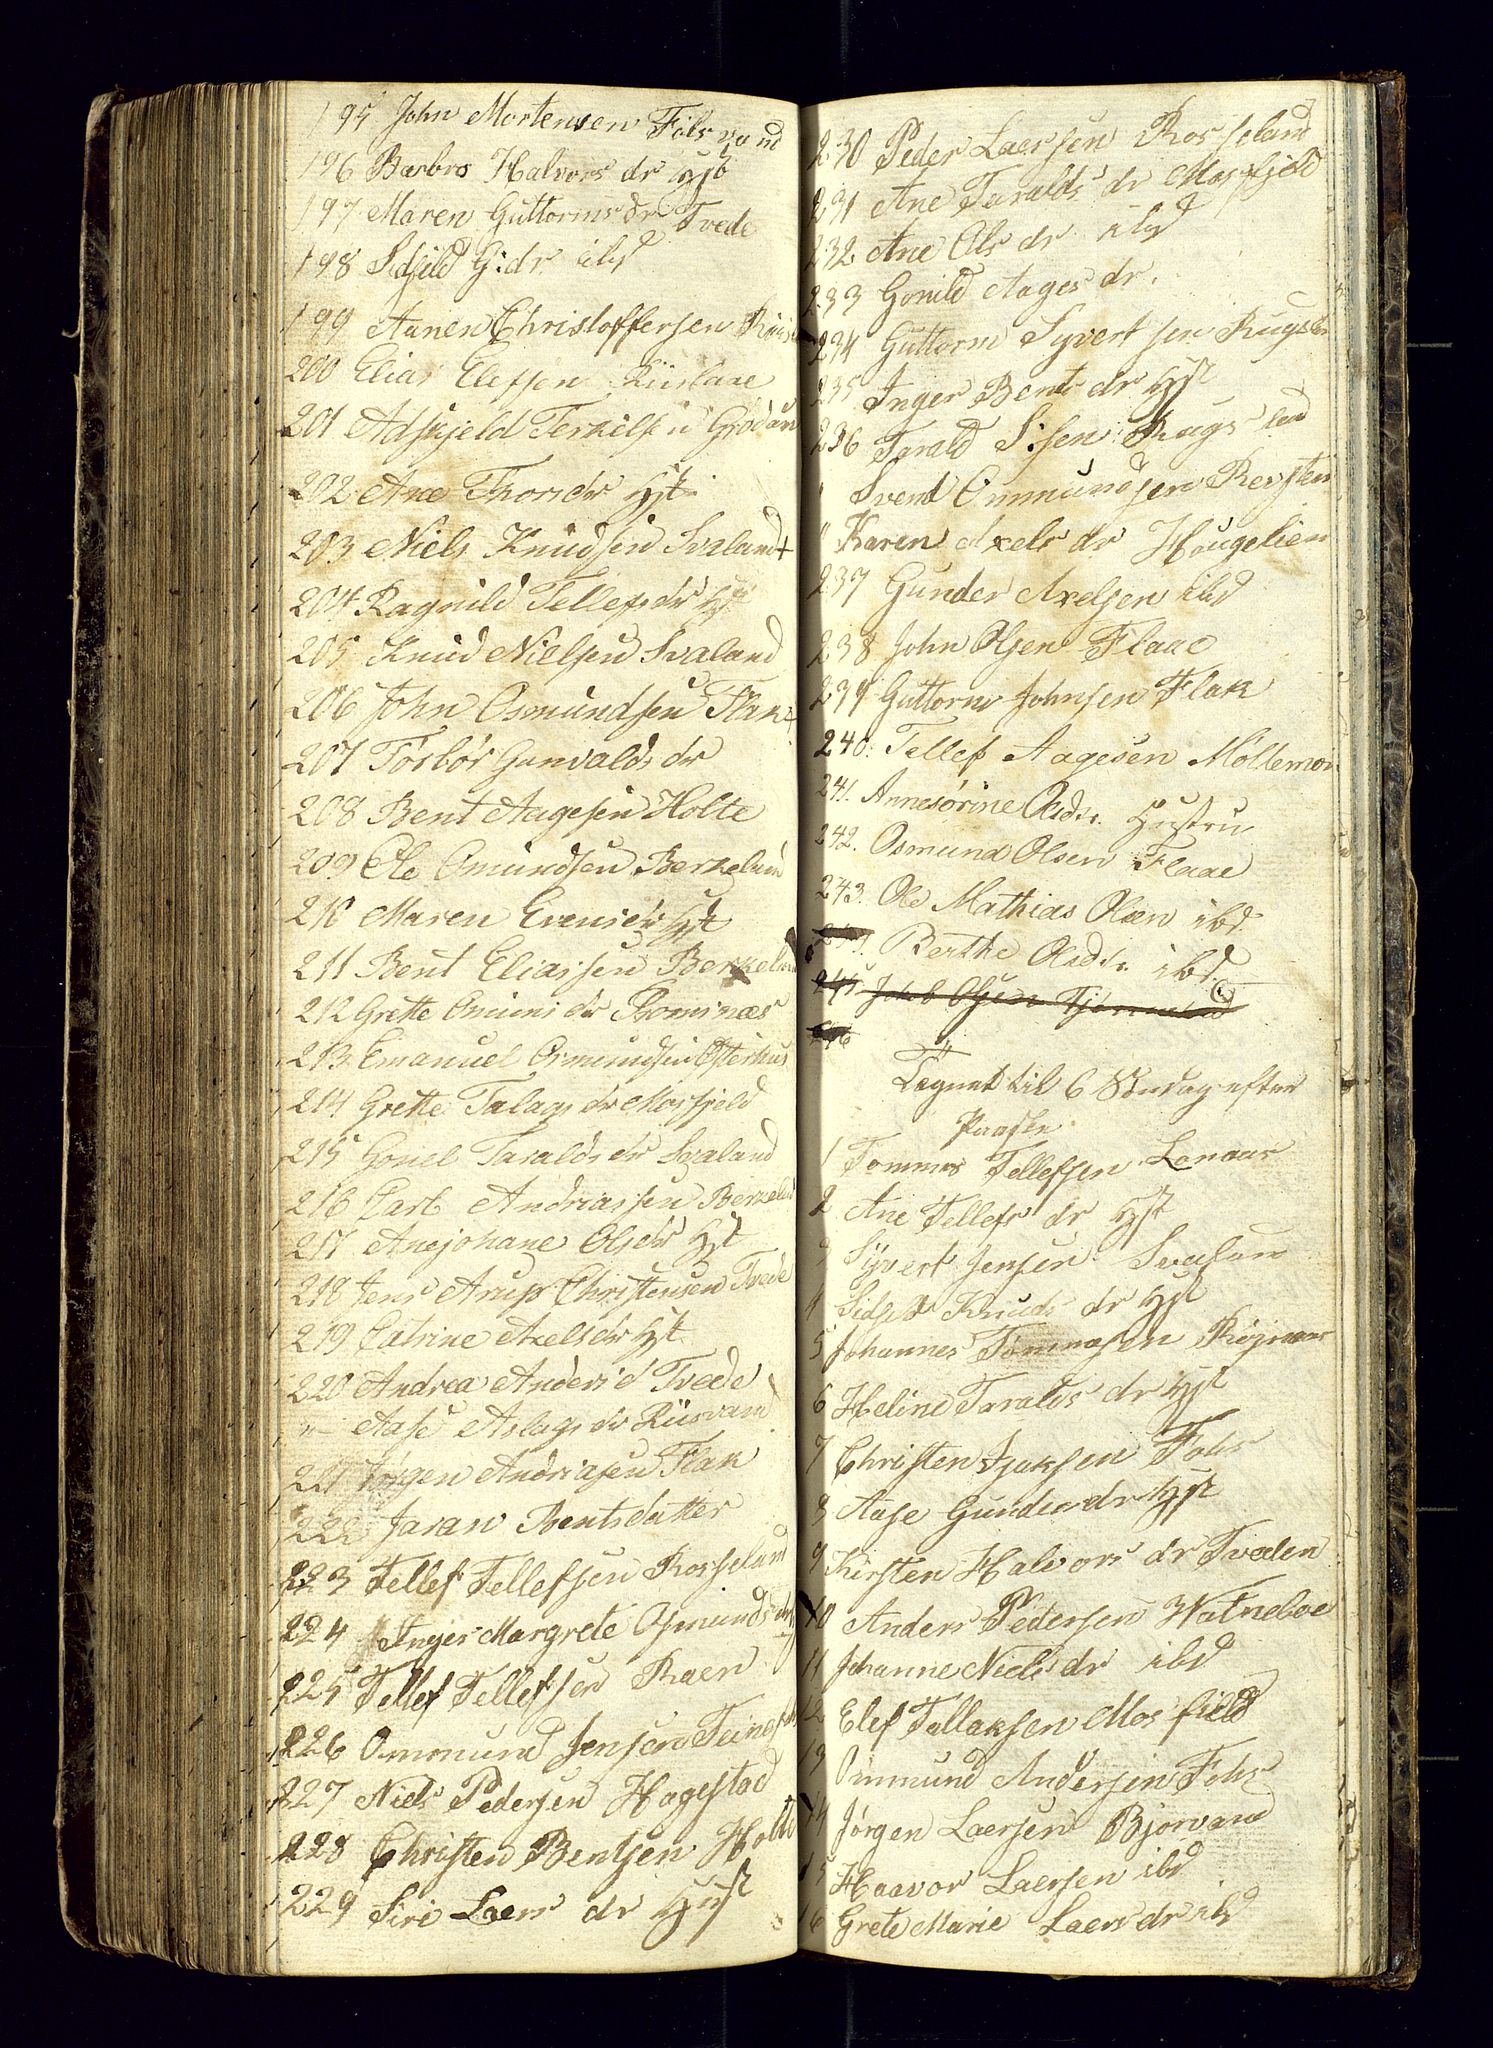 195 John Mortensen Fols vand
196 Barbro Halvors dr hst
197 Maren Guttorms dr Tvede
198 Sidsild G: dr ibd
199 Aanen Christoffersen
200 Elias Elefsen Riislane
201 Adskjeld Terkilsen
202 Ane Thors dr hst
203 Niels Knudsen Svaland +
204 Ragnild Tellefs dr hst
205 Knud Nielsen Svaland
206 John Osmundsen Flak
207 Torbor Gunvalds dr
208 Bent Aagesen Holte
209 Ole Omundsen Berkelund
210 Maren Evens dr hst
211 Bent Eliassen Berkelund
212 Grette Omuns dr Romenæs
213 Emanuel Osmundsen Osterhus
214 Grette Talags dr Mosfjeld
215 Gonel Taralds dr Svaland
216 Carl Andriassen Berkelund
217 Anejohane Ols dr hst
218 Jens Arup Christensen Tvede
219 Catrine Axels dr hst
220 Andrea Anders d Tvede
" Aase Aslags dr Riisvand
221 Jørgen Andriasen Flak
222 Jaran Bentsdatter
223 Tellef Tellefsen Rosseland
224 Inger Margrete Osmunds dr
225 Tellef Tellefsen Raen
226 Ommund Jensen
227 Niels Pedersen Hagestad
228 Christen Bentsen Holte
229 Siri Laers dr Hust
230 Peder Laersen Rosseland
231 Ane Taralds dr Mosfjeld
232 Ane Ols dr ibd
233 Gonild Aages dr.
234 Guttorm Syvertsen Rugslan
235 Inger Bents dr hst
236 Tarald S:sen Rugs land
" Svend Ommundsen
" Karen Axels dr Hougelien
237 Gunder Axelsen ibd
238 John Olsen Flaae
239 Guttorm Johnsen Flak
240. Tellef Aagesen Møllemon
241. Annesørine Olsdr. Hustru
242. Osmund Olsen Flaae
243. Ole Mathias Olsen ibd.
Berthe Olsdr. ibd.
245 Jakob Olsen
246
Tegnet til 6 Søndag efter
Paaske
1 Tommas Tellefsen Lanaar
2 Ane Tellefs dr hst
3 Syvert Jensen Svalund
4 Sidsel Knuds dr hst
5 Johannes Tommasen
6 Heline Taralds dr hst
7 Christen Isaksen Fohs
8 Aase Gunders dr hst
9 Kirsten Halvors dr Tveden
10 Anders Pedersen Watneboe
11 Johanne Niels dr ibd
12 Elef Tallaksen Mosfield
13 Ommund Andersen Fohs
14 Jørgen Laersen Bjorvand
15 Haavor Laersen ibd
16 Grete Marie Laers dr ibd